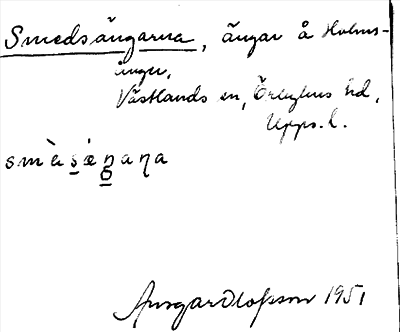 Smedsängarna, ängar å Holms-
ängen,
Västlands sn, Örbyhus hd,
Upps. l.
smè̀sęŋaɳa
Ansgar Olofsson 1951